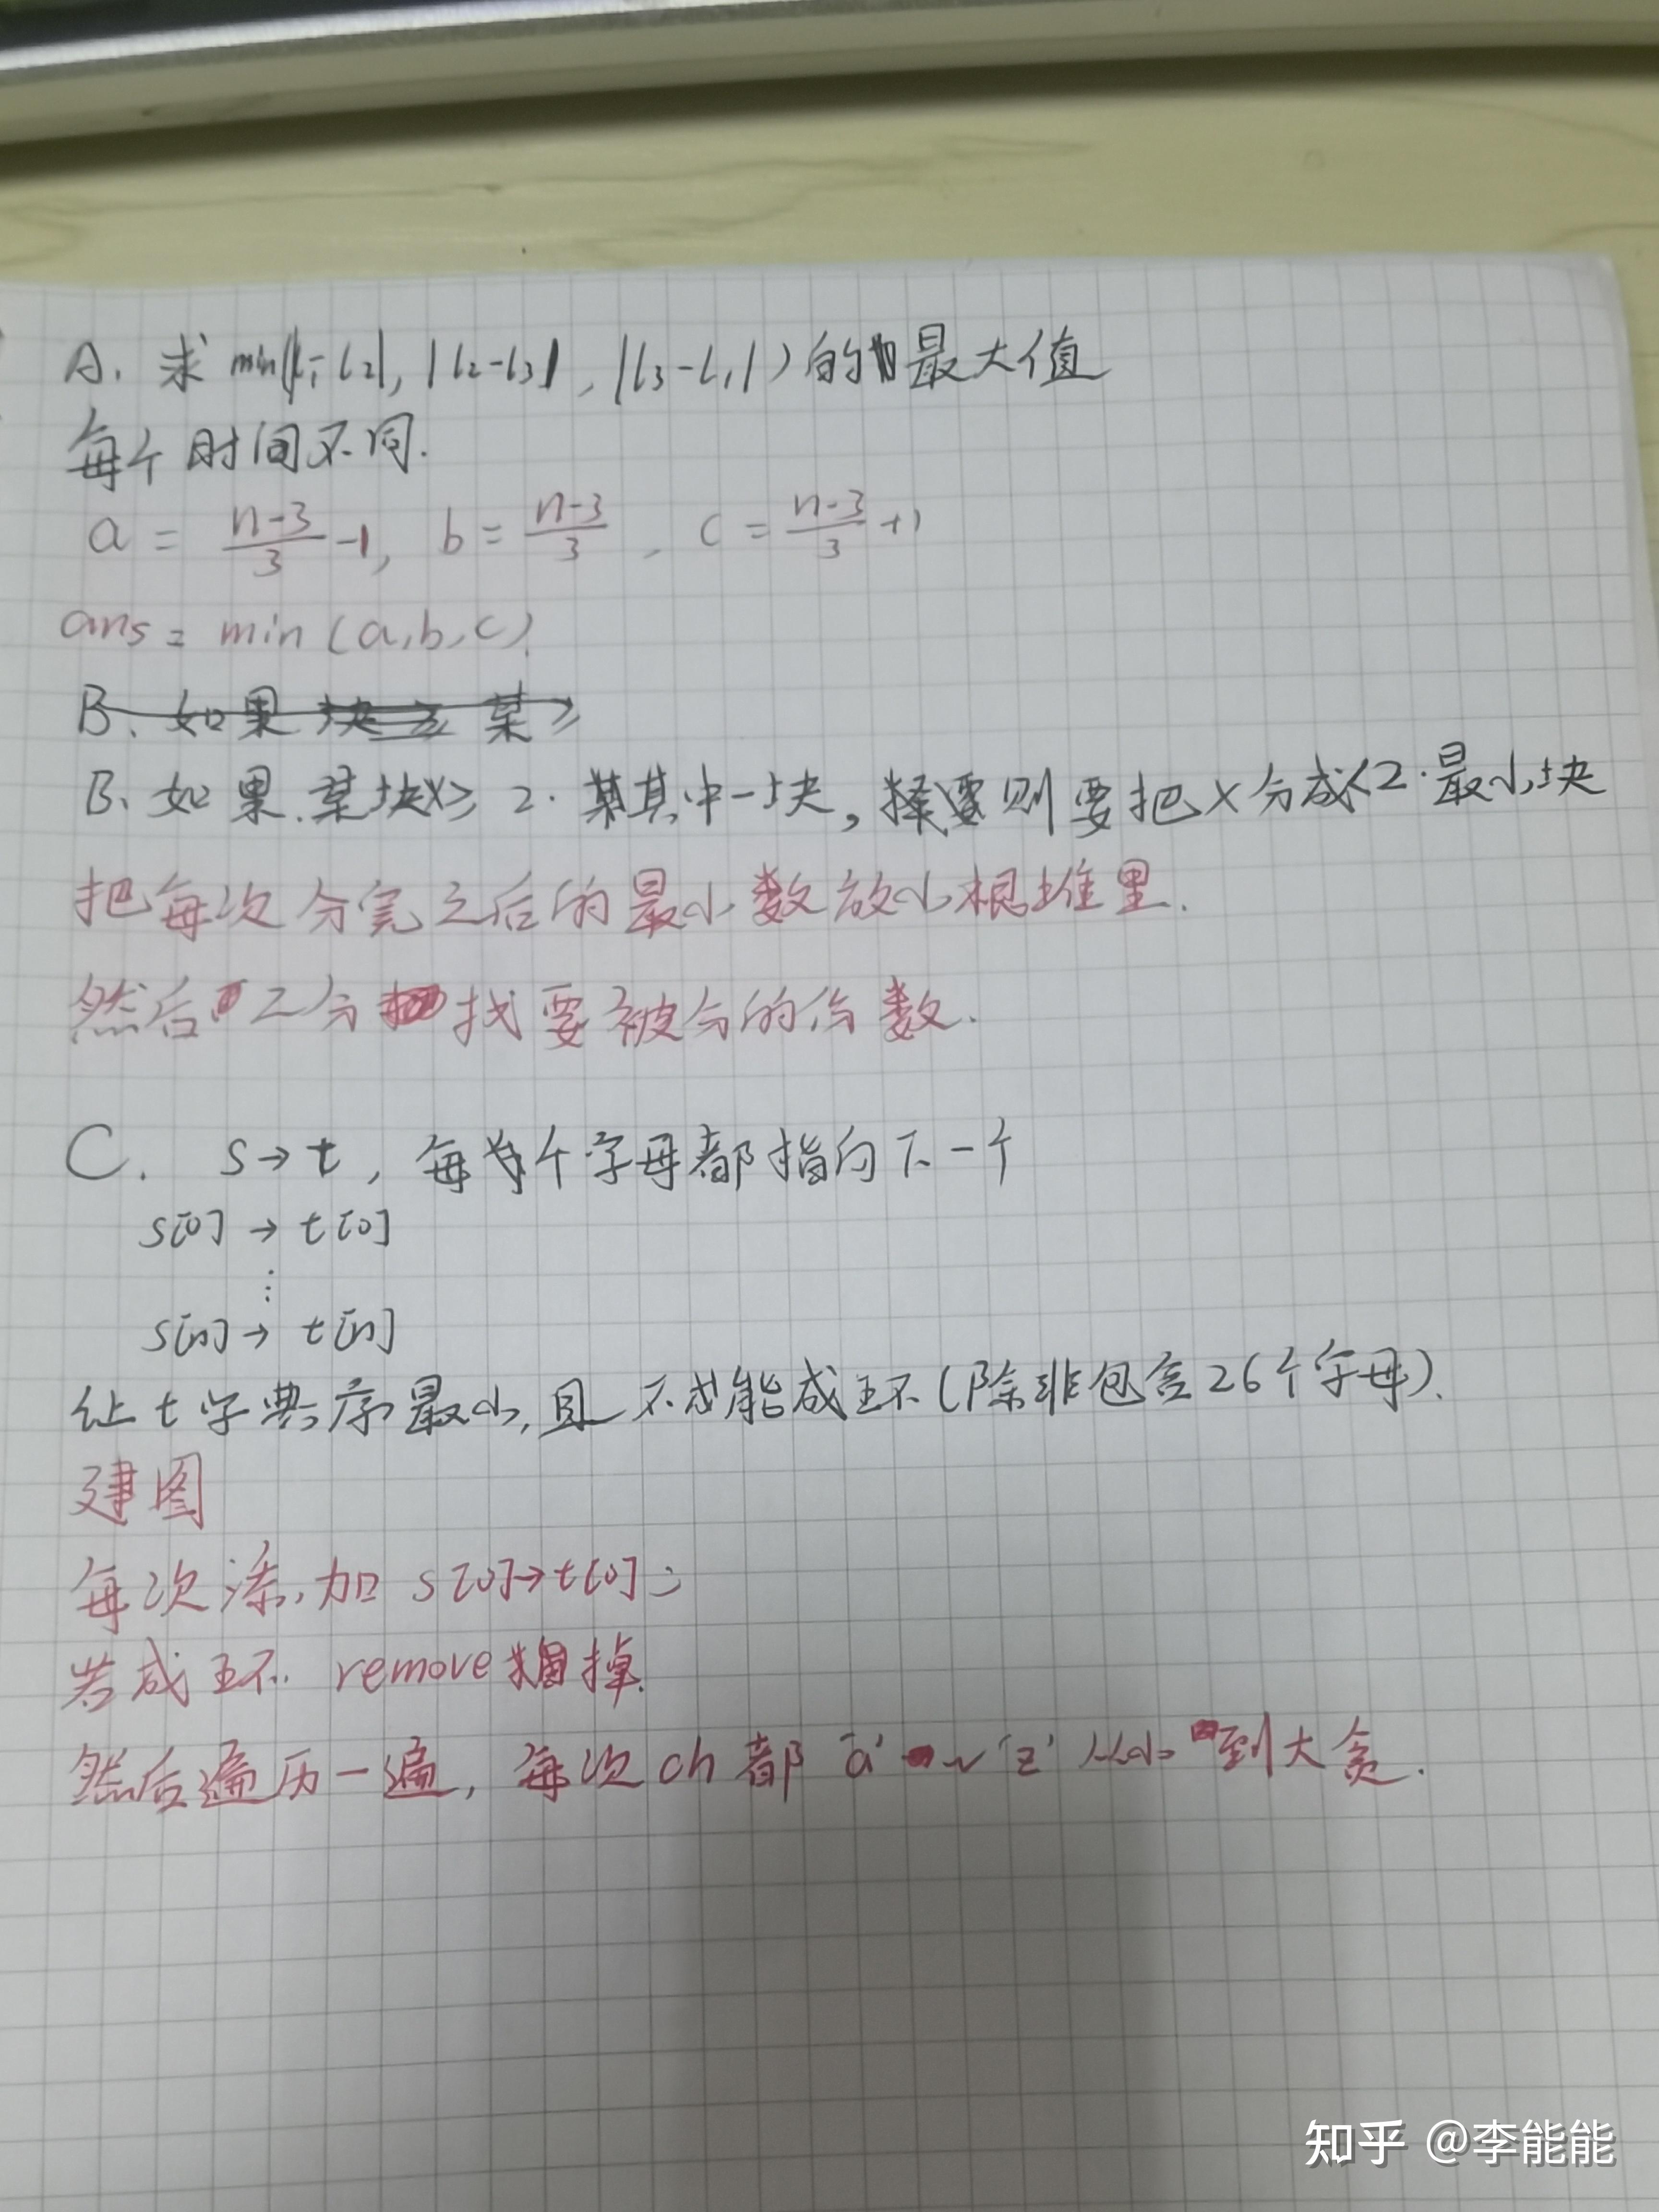 A. 求 min(|l₁-l₂|, |l₂-l₃|, |l₃-l₁|) 的最大值
每个时间不同.
a = \frac{n-3}{3}-1, b = \frac{n-3}{3}, c = \frac{n-3}{3}+1
ans = min (a,b,c).
B. 如果 块 某 ≥
B. 如果.某块x≥ 2·其中一块, 则要把x分成<2·最小块
把每次分完之后的最小数放小根堆里.
然后二分找要被分的份数.
C. s→t, 每个字母都指向下一个
s[0] → t[0]
⋮
s[n] → t[n]
让t字典序最小, 且不能成环(除非包含26个字母).
建图
每次添加 s[0]→t[0];
若成环. remove掉.
然后遍历一遍, 每次ch都 'a' ~ 'z' 从小到大贪.
知乎 @李能能